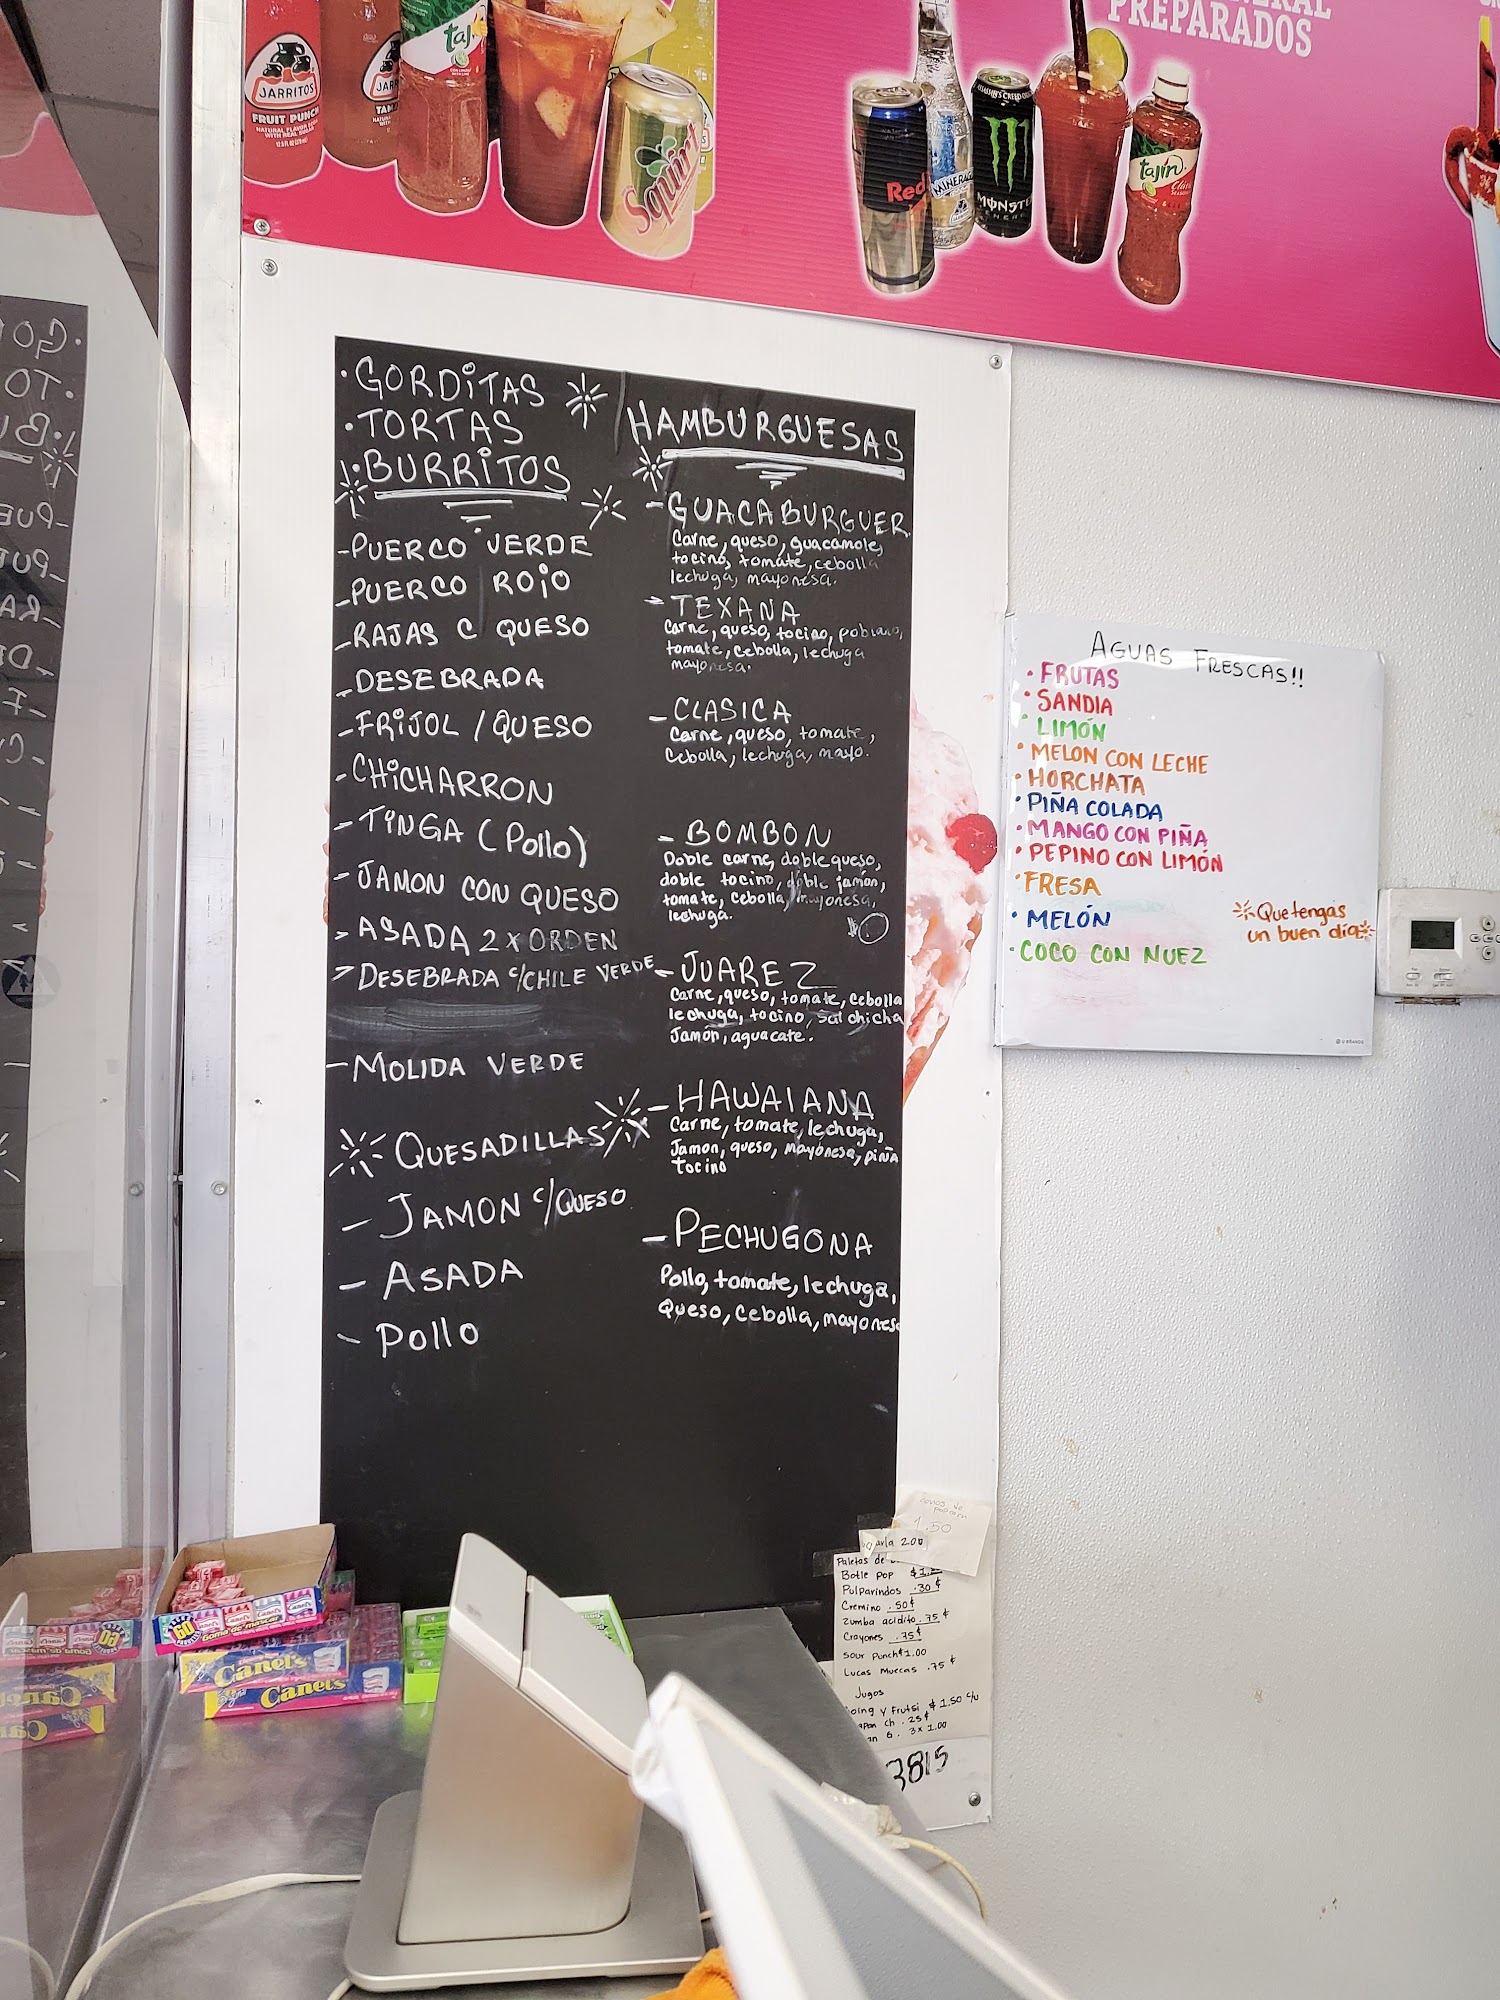 JARRITOS
FRUIT PUNCH
NATURAL FLAVOR SODA
WITH REAL SUGAR
tajín
Squirt
PREPARADOS
Red
MINERAGUA
MONSTER
ENERGY
tajín
· GORDITAS
· TORTAS
· BURRITOS
- PUERCO VERDE
- PUERCO ROJO
- RAJAS C QUESO
- DESEBRADA
- FRIJOL / QUESO
- CHICHARRON
- TINGA (Pollo)
- JAMON CON QUESO
> ASADA 2 X ORDEN
> DESEBRADA c/CHILE VERDE
- MOLIDA VERDE
QUESADILLAS
- JAMON c/QUESO
- ASADA
- POLLO
HAMBURGUESAS
- GUACABURGUER
Carne, queso, guacamole,
tocino, tomate, cebolla
lechuga, mayonesa.
- TEXANA
Carne, queso, tocino, poblano,
tomate, cebolla, lechuga
mayonesa.
- CLASICA
Carne, queso, tomate,
Cebolla, lechuga, mayo.
- BOMBON
Doble carne, doble queso,
doble tocino, doble jamon,
tomate, cebolla, mayonesa,
lechuga.
- JUAREZ
Carne, queso, tomate, cebolla
lechuga, tocino, salchicha
Jamón, aguacate.
- HAWAIANA
Carne, tomate, lechuga,
Jamon, queso, mayonesa, piña
tocino
- PECHUGONA
Pollo, tomate, lechuga,
Queso, cebolla, mayonesa
AGUAS FRESCAS!!
· FRUTAS
· SANDIA
· LIMÓN
· MELON CON LECHE
· HORCHATA
· PIÑA COLADA
· MANGO CON PIÑA
· PEPINO CON LIMÓN
· FRESA
· MELÓN
· COCO CON NUEZ
Que tengas
un buen día
U BRANDS
1.50
Paletas de
Botle pop
Pulparindos .30¢
Cremino .50¢
Zumba acidito .75¢
Crayones .75¢
Sour Punch $1.00
Lucas Muecas .75¢
Jugos
y Frutsi $1.50 c/u
ch .25¢
6. 3x1.00
3815
60
Canel's
Goma de mascar
Canel's
Canel's